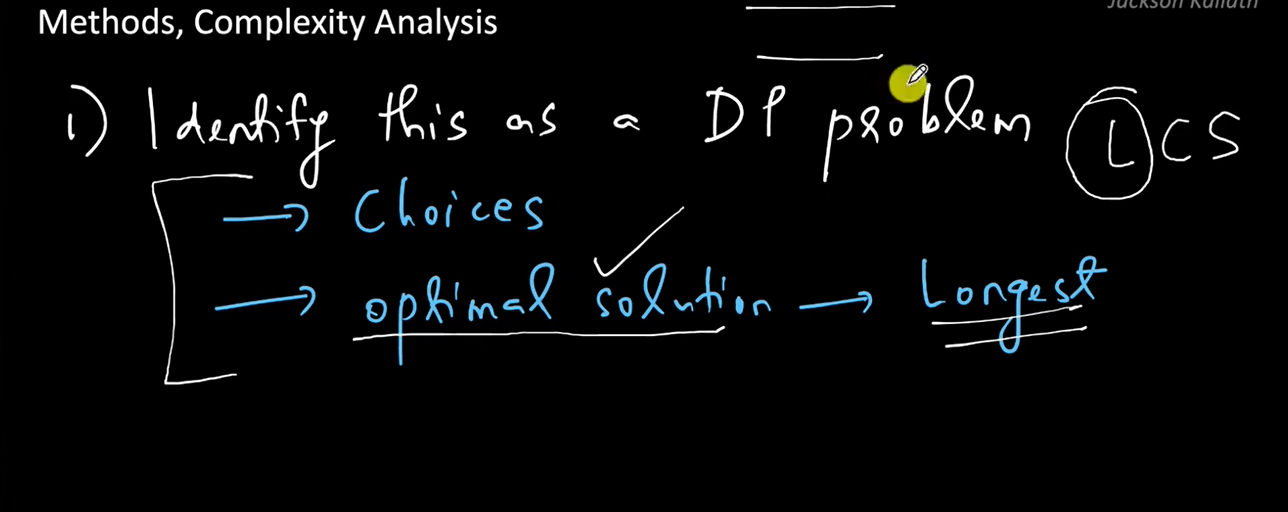 Methods, Complexity Analysis
1) Identify this as a DP problem LCS
→ Choices
→ optimal solution → Longest